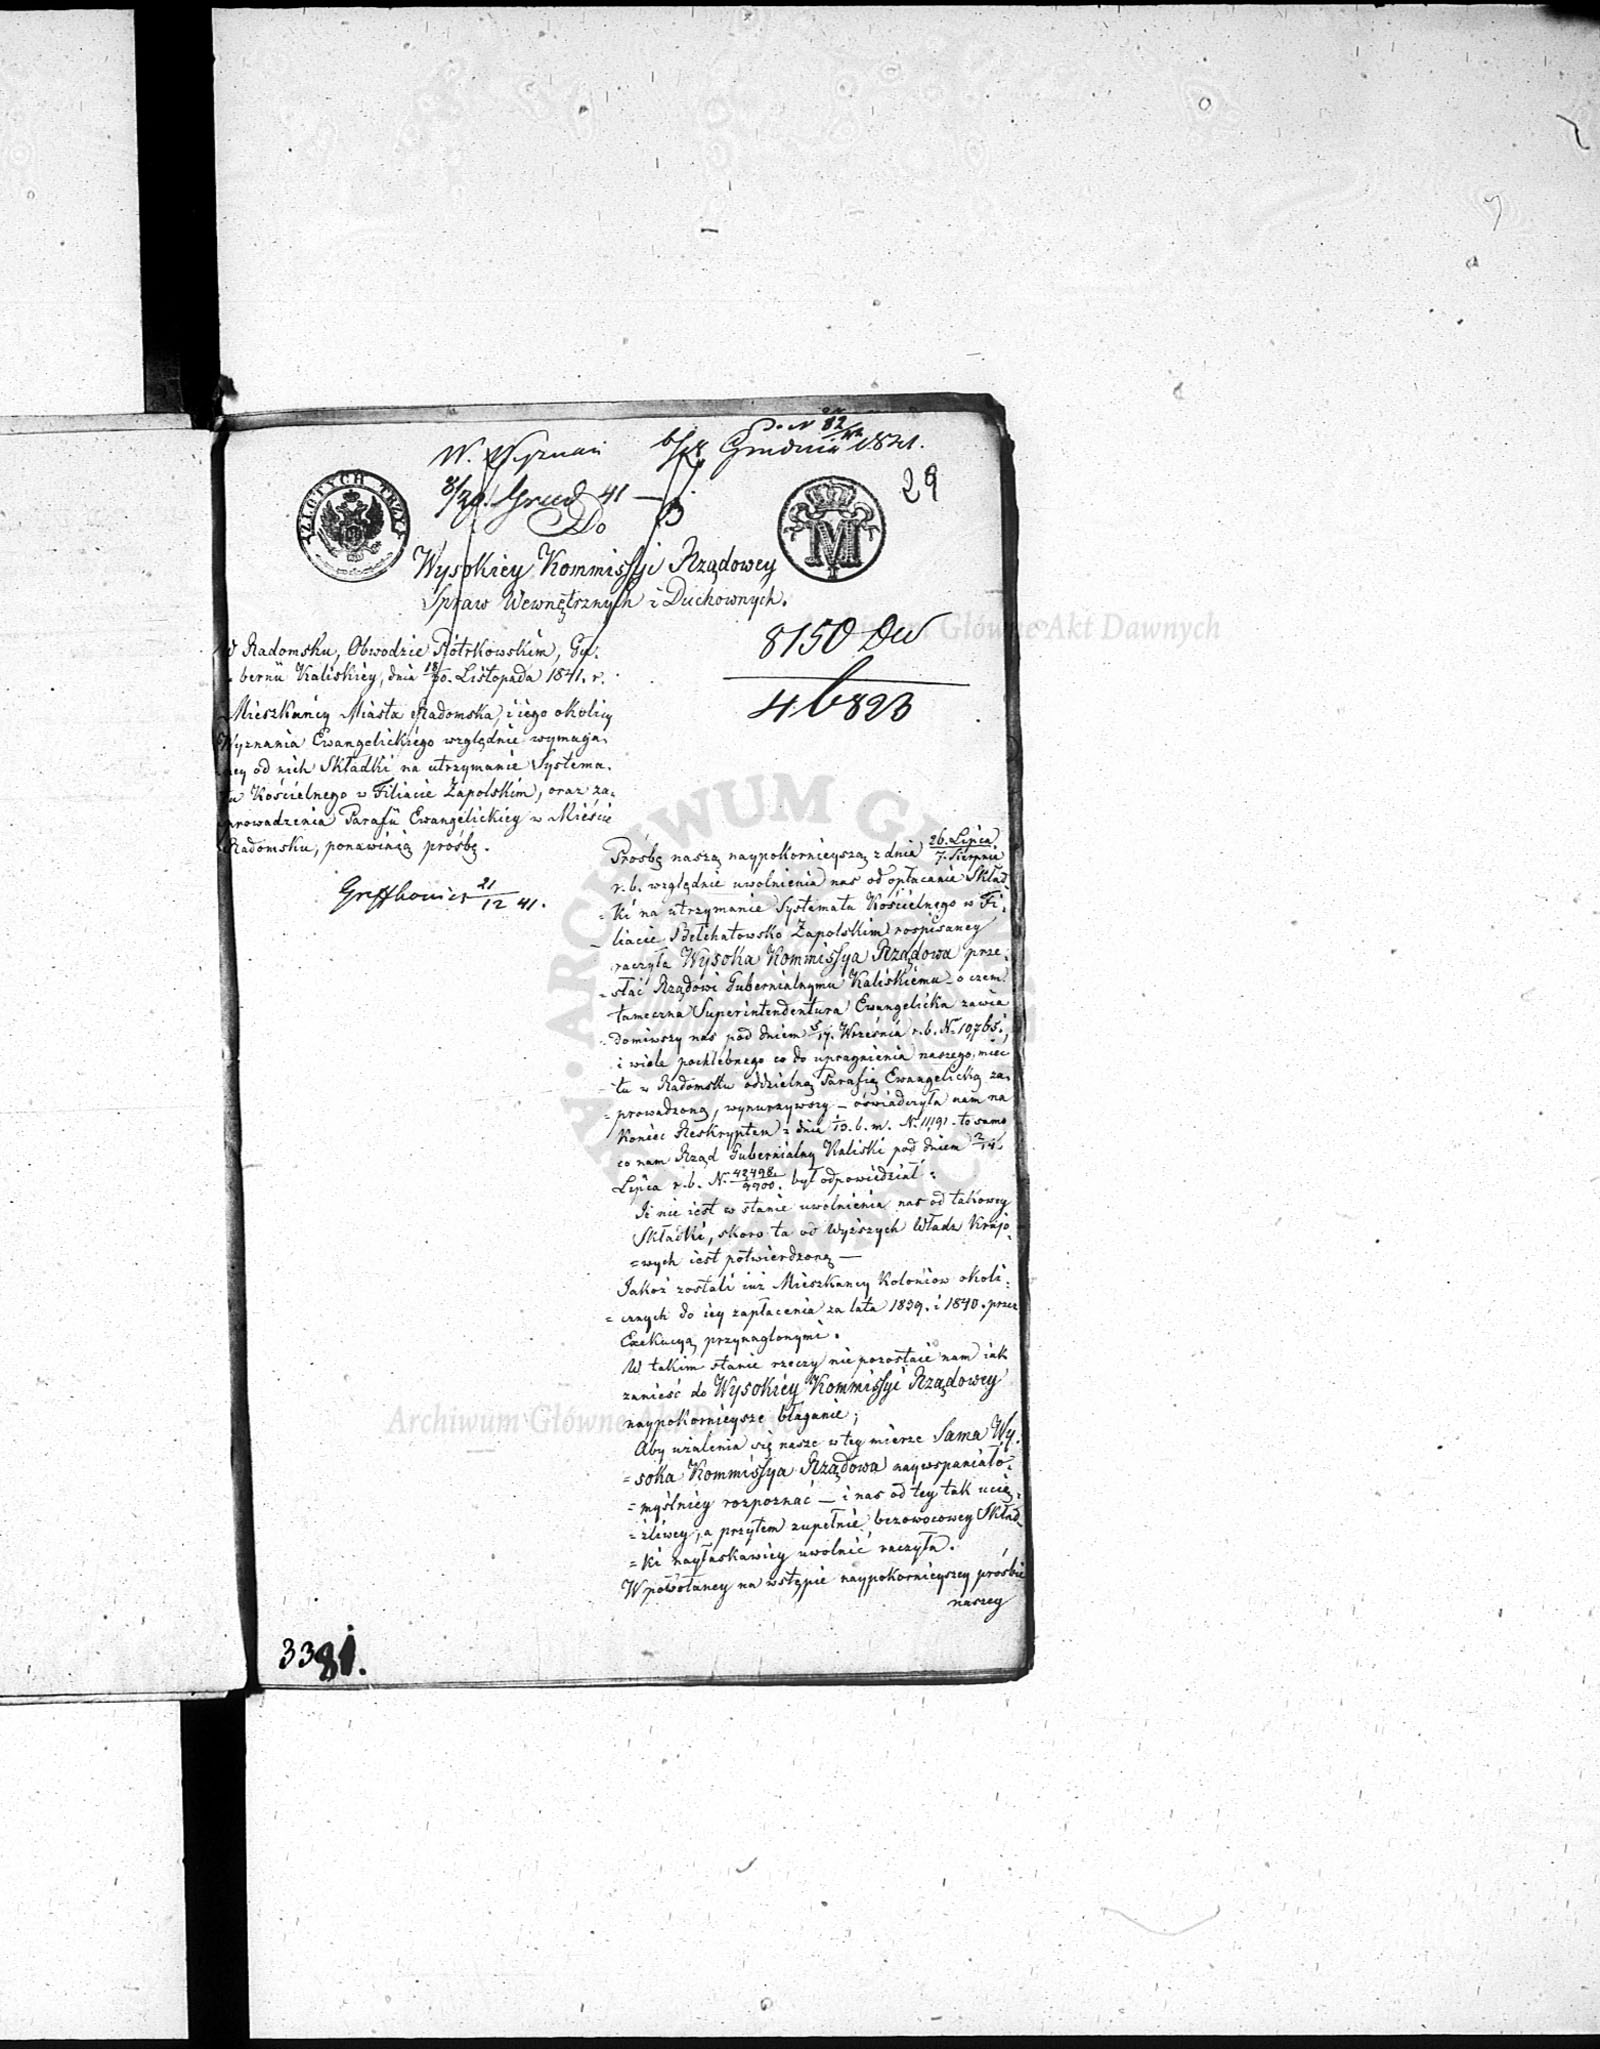 W. Wyznań
Grudnia 1841.
29
8/20. Grud 41
ZŁOTYCH TRZY
M
Do
Wysokiey Kommissyi Rządowey
Spraw Wewnętrznych i Duchownych.
8150 DW
4b823
W Radomsku, Obwodzie Piotrkowskim, Gu-
bernii Kaliskiey, dnia 18/30. Listopada 1841. r.
Mieszkańcy Miasta Radomska, i iego okolicy
Wyznania Ewangelickiego względnie wymaga-
ney od nich Składki na utrzymanie Systema-
tu Kościelnego w Filiacie Zapolskim, oraz za-
prowadzenia Parafii Ewangelickiey w Mieście
Radomsku, ponawiaią prośbę.
21/12 41.
Prośbę naszą naypokornieyszą z dnia 26. Lipca/7. Sierpnia
r. b. względnie uwolnienia nas od opłacania Skład
= ki na utrzymanie Systematu Kościelnego w Fi-
= liacie Bełchatowsko Zapolskim rospisaney
raczyła Wysoka Kommissya Rządowa prze-
= słać Rządowi Gubernialnymu Kaliskiemu – o czem
tameczna Superintendentura Ewangelicka zawia
= domiwszy nas pod dniem 5/17. Września r. b. Nr 10,765.,
i wiele pochlebnego co do upragnienia naszego, mieć
tu w Radomsku oddzielną Parafię Ewangelicką za-
= prowadzoną, wynurzywszy – oświadczyła nam na
koniec Reskryptem z dnia 1/13. b. m. N. 11,191. to samo
co nam Rząd Gubernialny Kaliski pod dniem 2/14.
Lipca r. b. N. 42498./9900. był odpowiedział:
Iż nie iest w stanie uwolnienia nas od takowey
Składki, skoro ta od Wyższych Władz Krajo-
= wych iest potwierdzoną —
Jakoż zostali iuż Mieszkancy Koloniow okoli-
= cznych do iey zapłacenia za lata 1839. i 1840. przez
Exekucyą przynaglonymi.
W takim stanie rzeczy nie pozostaie nam iak
zanieść do Wysokiey Kommissyi Rządowey
naypokornieysze błaganie;
Aby użalenia się nasze w tey mierze Sama Wy-
= soka Kommissya Rządowa naywspaniało-
= myślniey rozpoznać — i nas od tey tak ucią-
= żliwey, a przytem zupełnie bezowocowey Skład-
= ki nayłaskawiey uwolnić raczyła.
W powołaney na wstępie naypokornieyszey prośbie
naszey
3381.
Archiwum Główne Akt Dawnych
Archiwum Główne Akt Dawnych